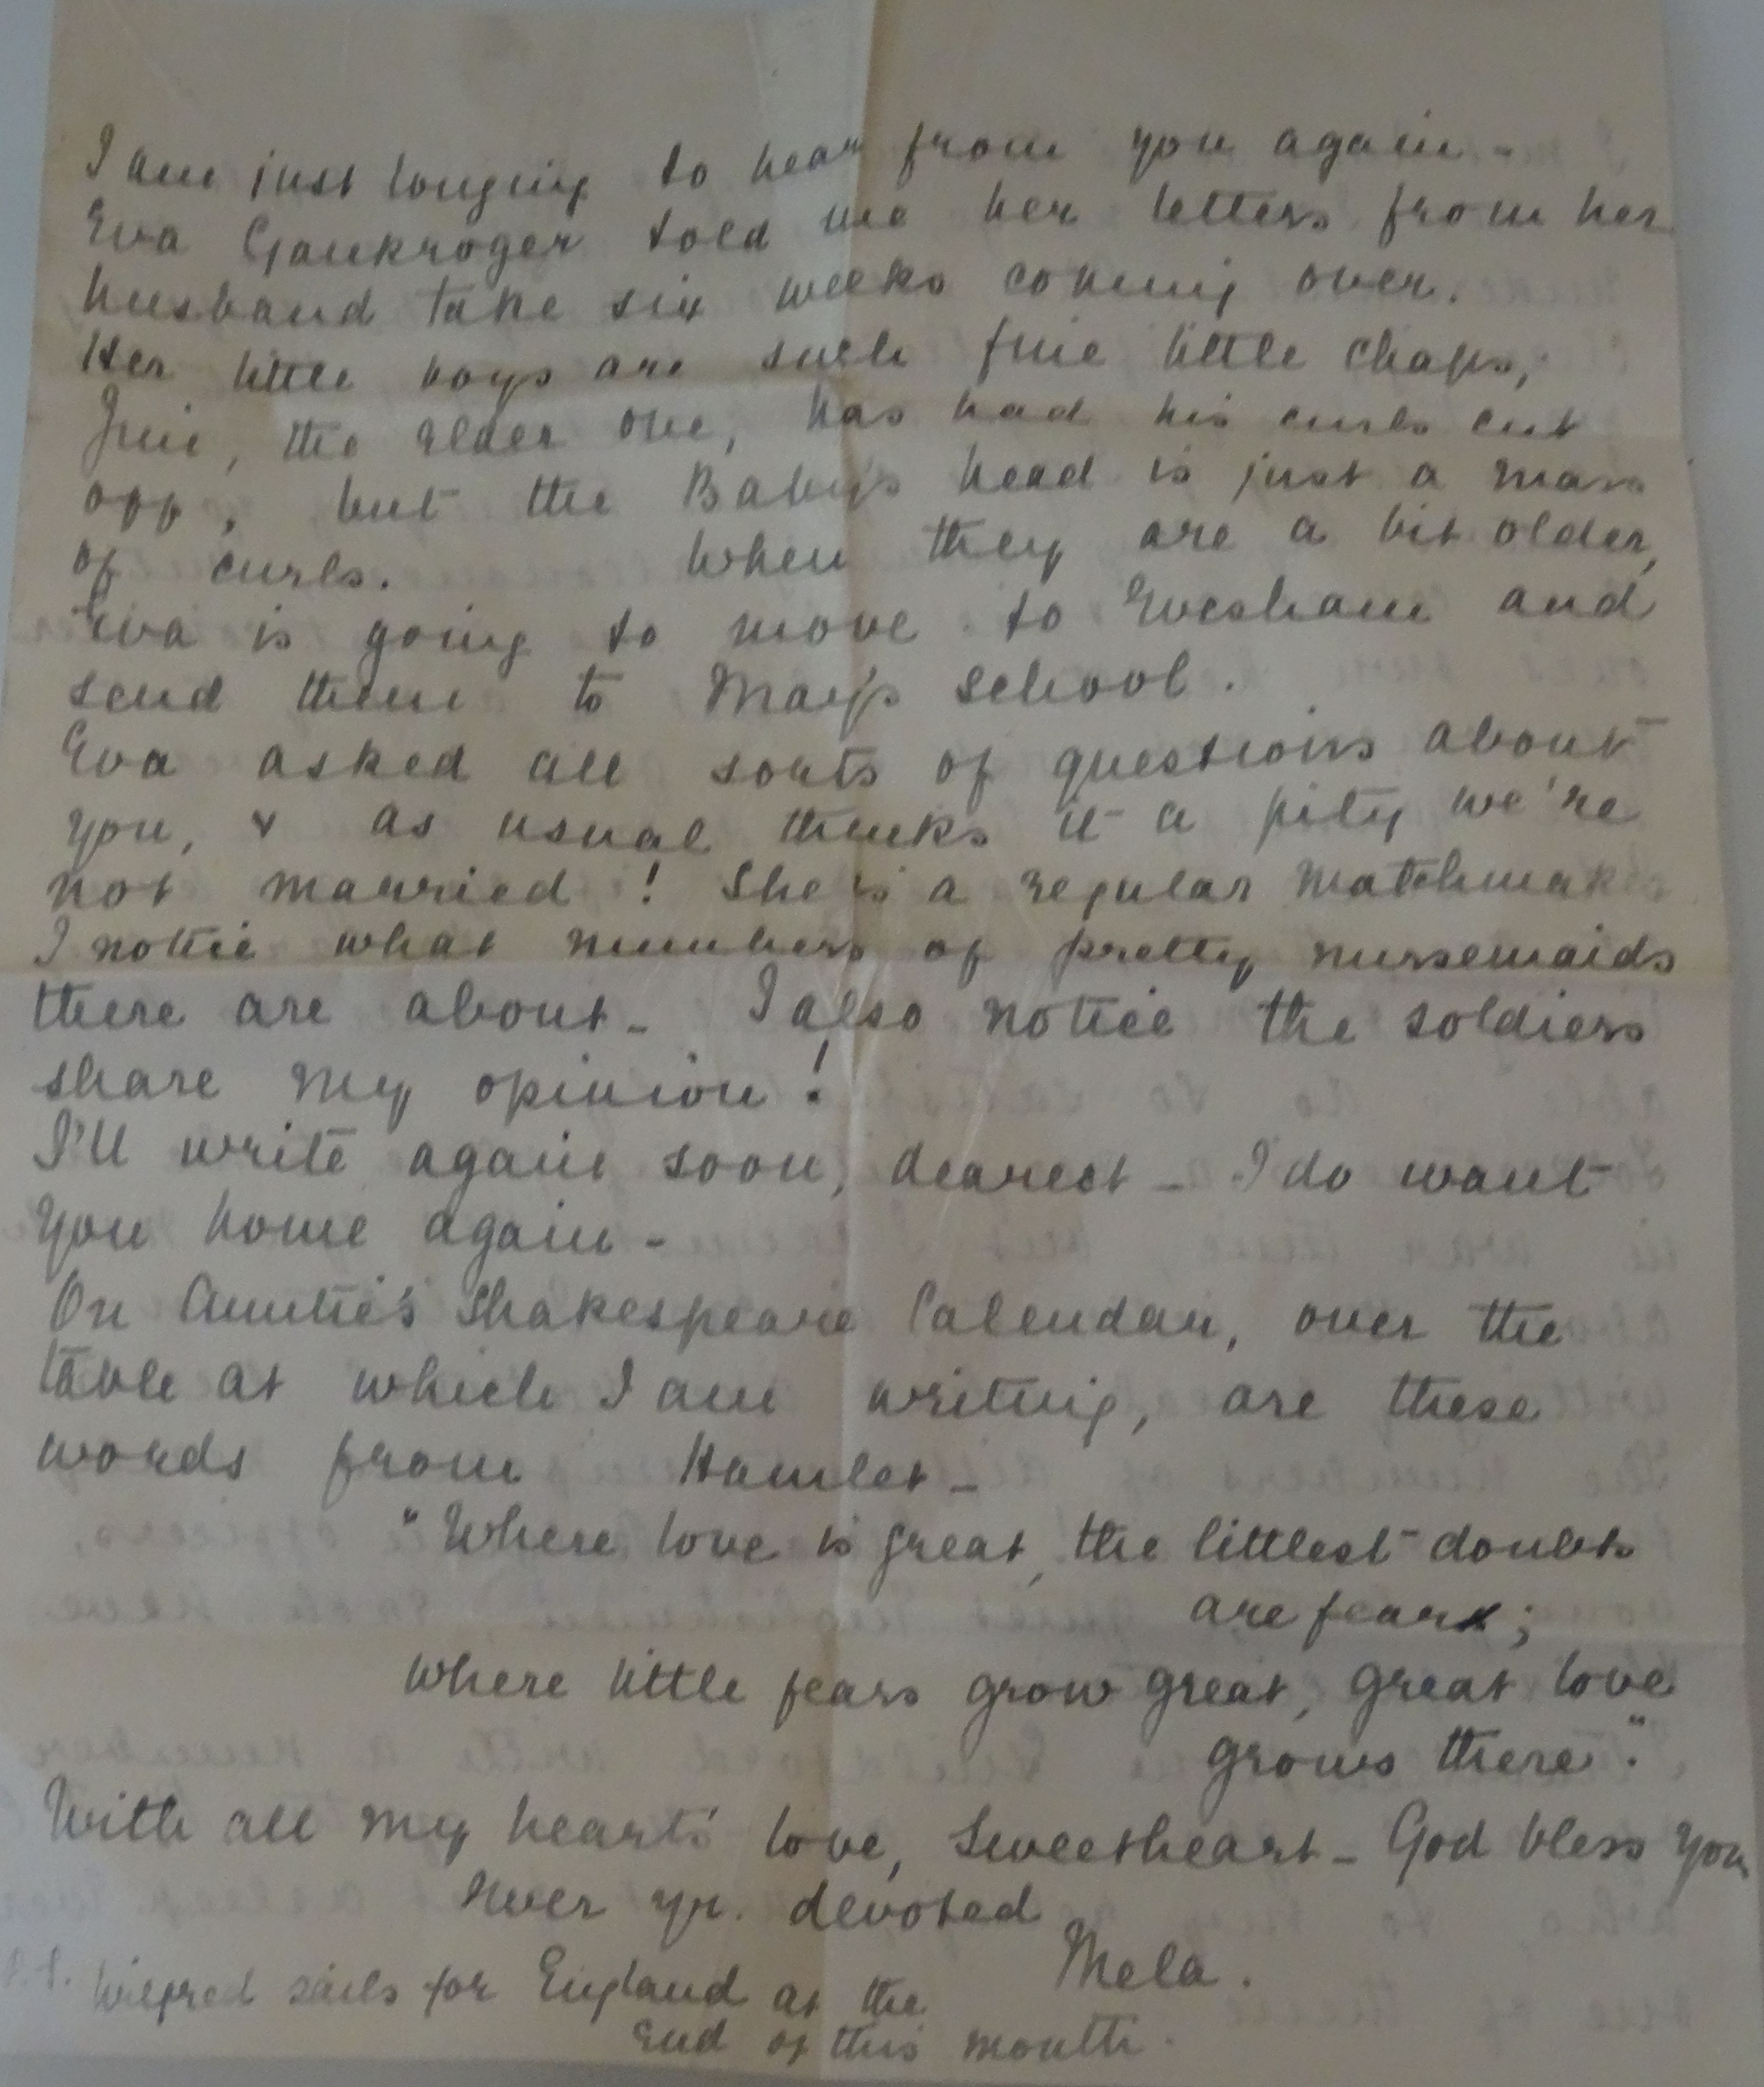 I am just longing to hear from you again -
Eva Gaukroger told me her letters from her
husband take six weeks coming over.
Her little boys are such fine little chaps,
Jim, the elder one, has had his curls cut
off, but the Baby's head is just a mass
of curls. When they are a bit older,
Eva is going to move to Evesham and
send them to May's school.
Eva asked all sorts of questions about
you, & as usual thinks it a pity we're
not married! She is a regular
I notice what numbers of pretty nursemaids
there are about - I also notice the soldiers
share my opinion!
I'll write again soon, dearest - I do want
you home again -
On Auntie's Shakespeare Calendar, over the
table at which I am writing, are these
words from Hamlet -
"Where love is great, the littlest doubts
are fear;
Where little fears grow great, great love
grows there."
With all my heart's love, Sweetheart - God bless you
Ever yr. devoted
Mela.
P.S. Wilfred sails for England at the
end of this month.